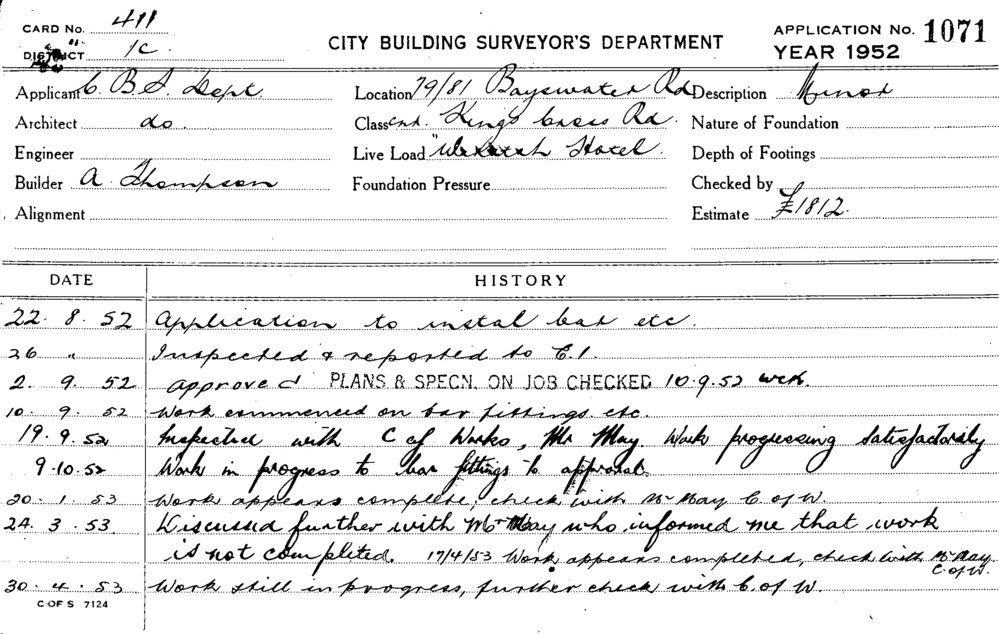 CARD No. 411
DISTRICT 1c.
CITY BUILDING SURVEYOR'S DEPARTMENT
APPLICATION No. 1071
YEAR 1952
Applicant C. B. S. Dept.
Location 79/81 Bayswater Rd
Description Minor
Architect do.
Class cnr. Kings Cross Rd.
Nature of Foundation
Engineer
Live Load Hotel.
Depth of Footings
Builder A. Thompson
Foundation Pressure
Checked by
Alignment
Estimate £1812.
DATE HISTORY
22. 8. 52 Application to instal bar etc.
26 " Inspected & reported to C.I.
2. 9. 52 approved PLANS & SPECN. ON JOB CHECKED 10.9.52
10. 9. 52 Work commenced on bar fittings etc.
19. 9. 52 Inspected with C of Works, Mr May. Work progressing satisfactorily
9.10.52 Work in progress to bar fittings to approval.
20. 1. 53 Work appears complete, check with Mr May C. of W.
24. 3. 53. Discussed further with Mr May who informed me that work
is not completed. 17/4/53 Work appears completed, check with Mr May.
C. of W.
30. 4. 53 Work still in progress, further check with C. of W.
C OF S 7124